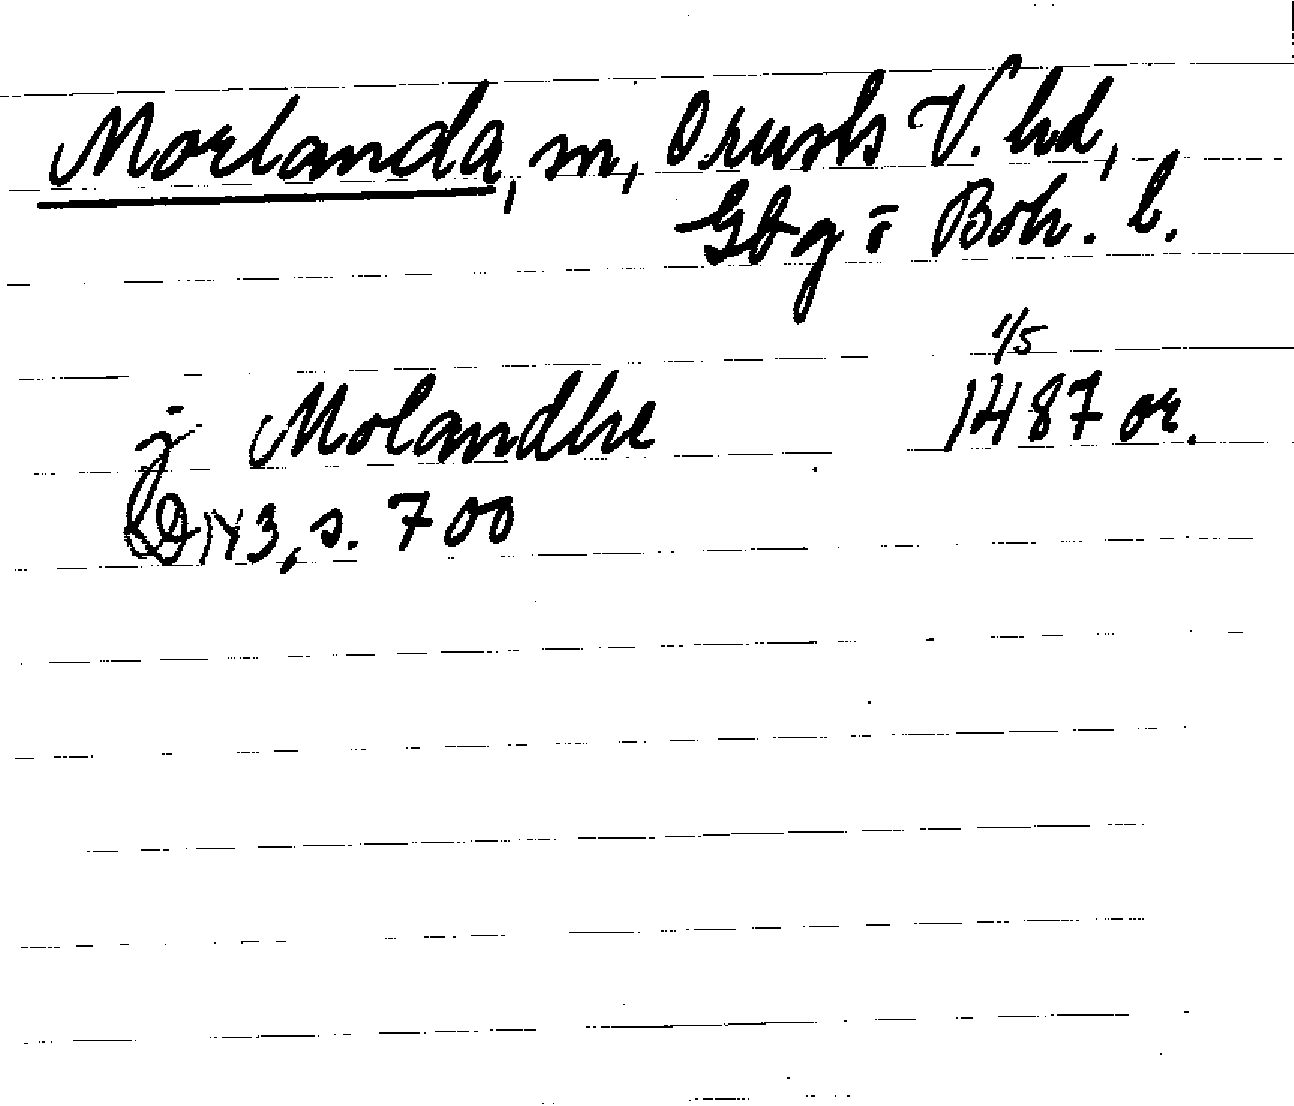 Morlanda, sn, Orusts V. hd,
Gbg o Boh. l.
1/5
j Molandhe 1487 or.
DN 3, s. 700